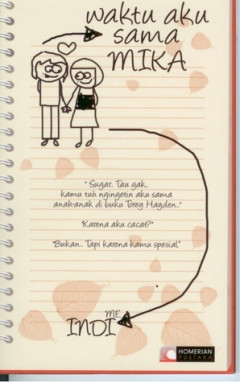 waktu aku
sama
MIKA
"Sugar.. Tau gak..
kamu tuh ngingetin aku sama
anak-anak di buku Torey Hayden.."
Karena aku cacat?"
"Bukan.. Tapi karena kamu spesial"
ME
INDI
HOMERIAN
PUSTAKA